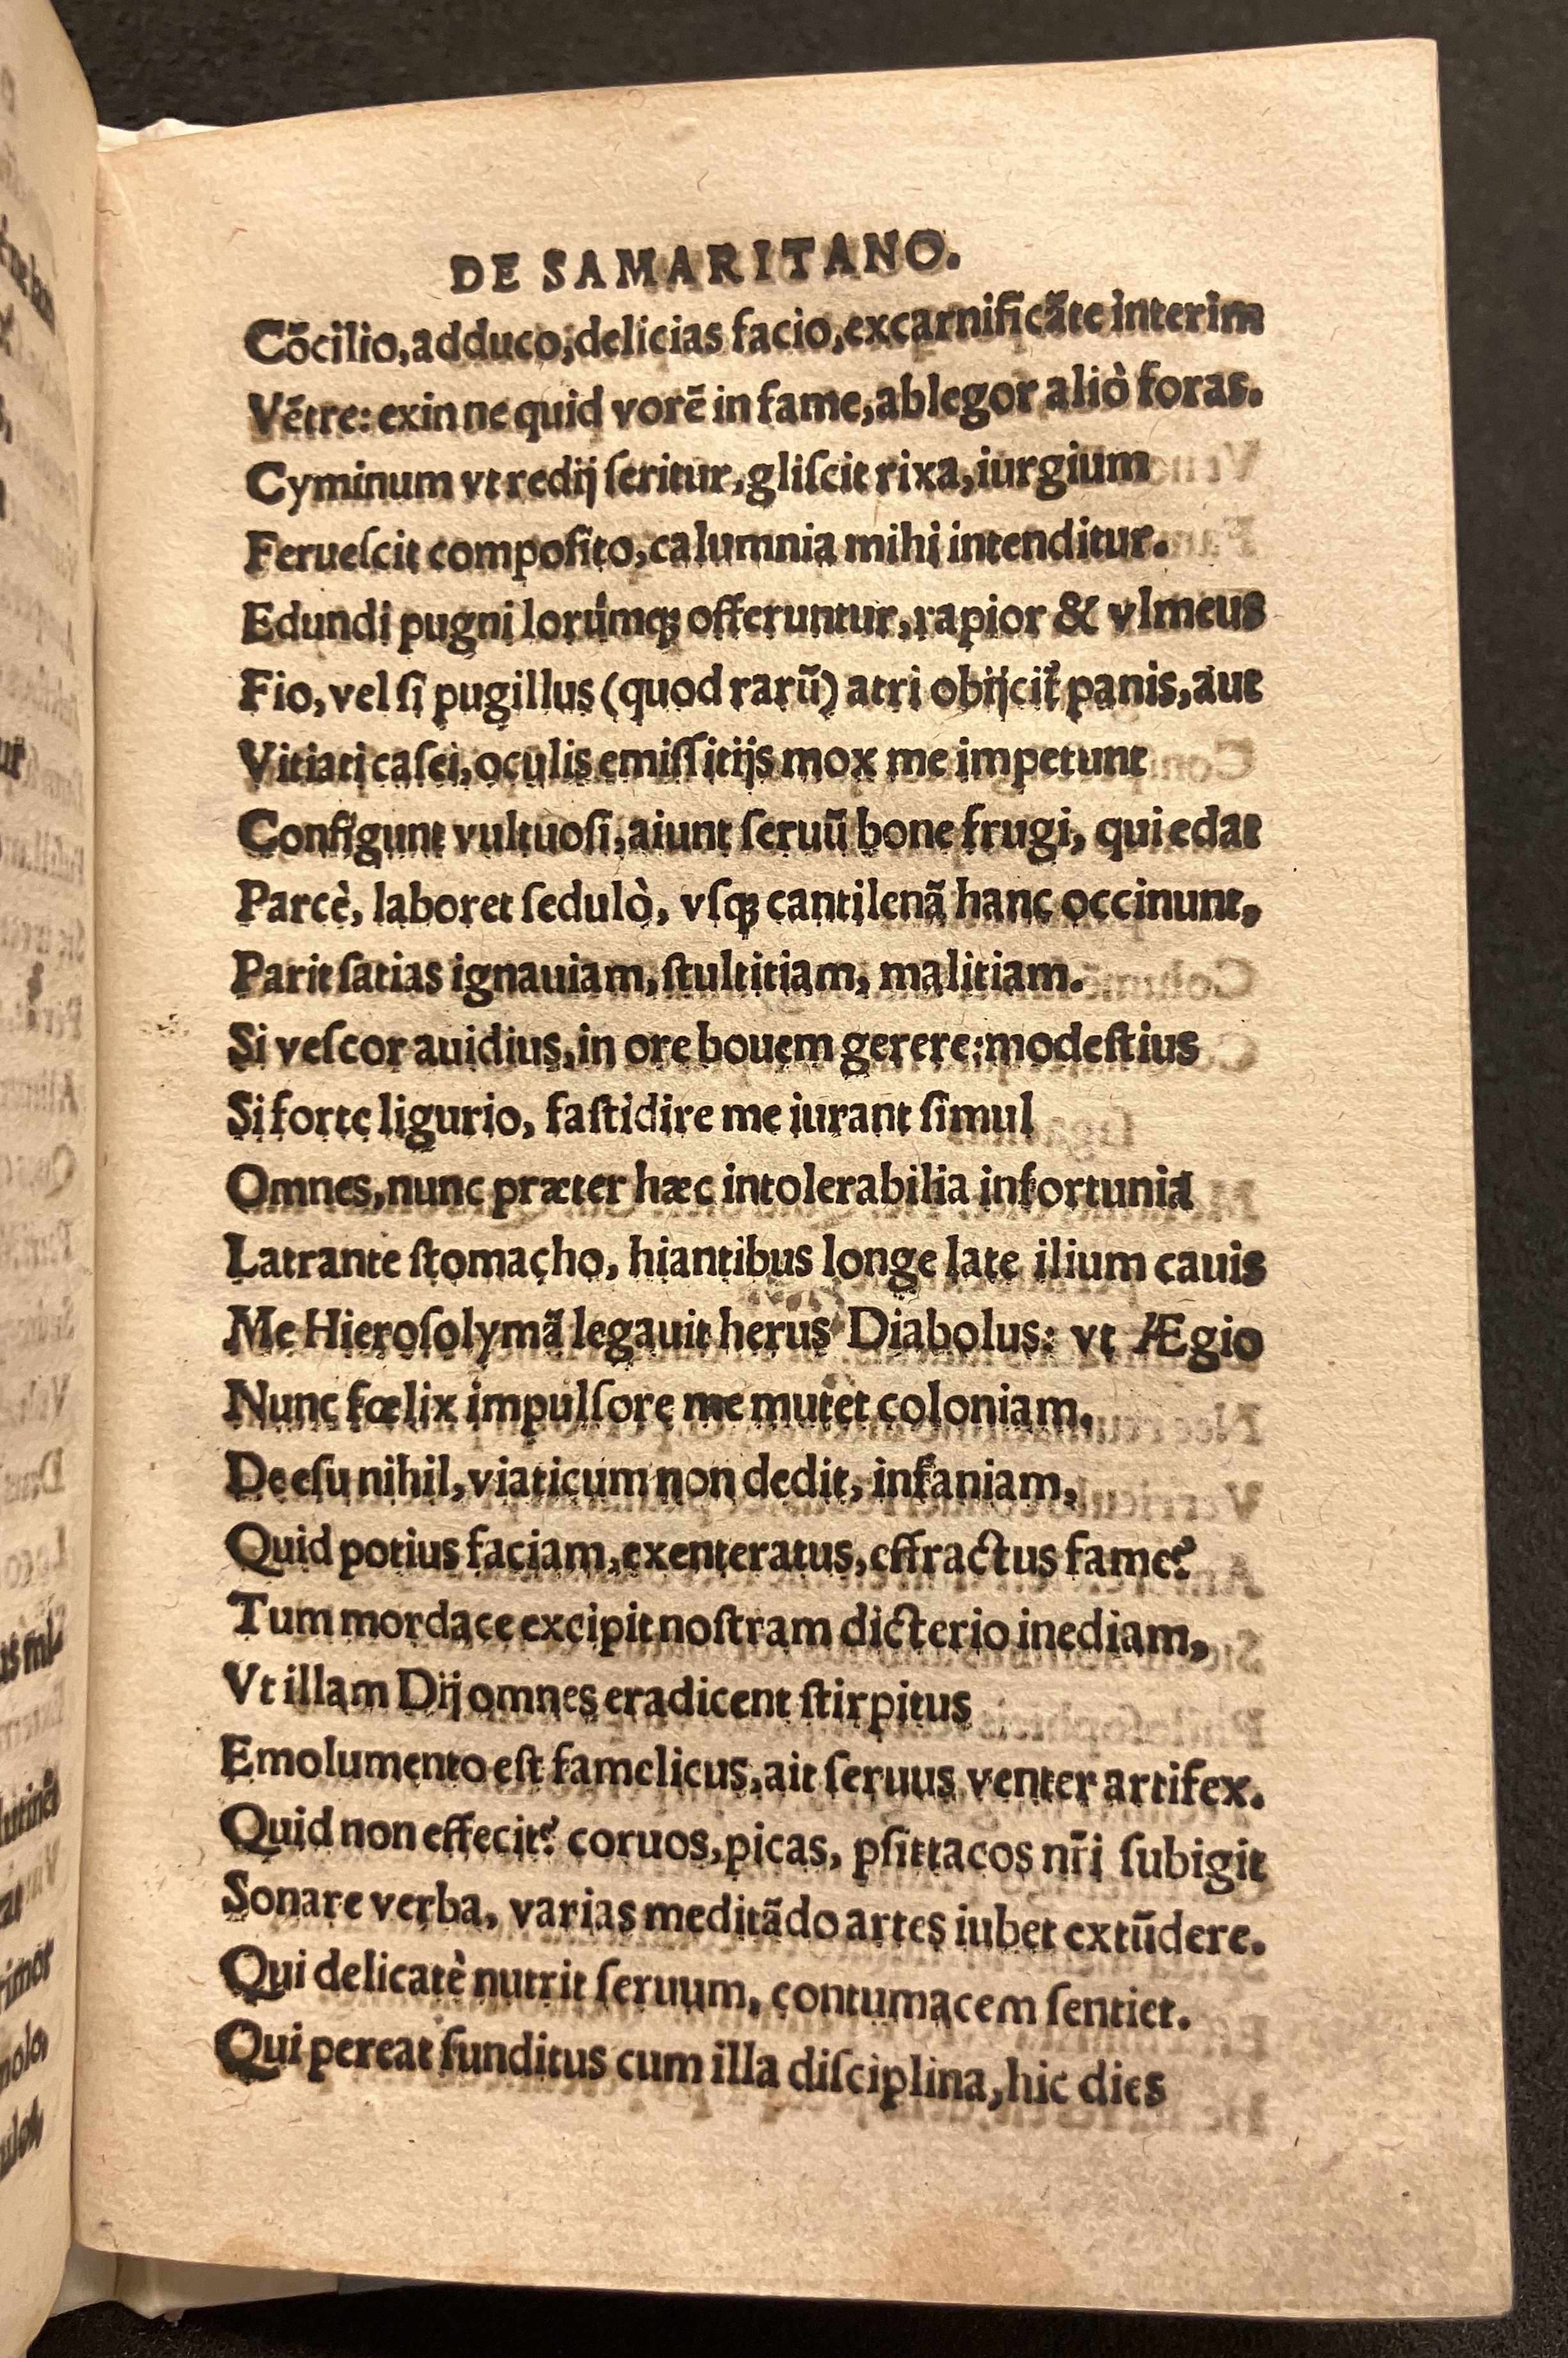 DE SAMARITANO.
Cōcilio, adduco, delicias facio, excarnificāte interim
Vētre: exin ne quid vorē in fame, ablegor aliò foras.
Cyminum vt redij ſeritur, gliſcit rixa, iurgium
Ferueſcit compoſito, calumnia mihi intenditur.
Edundi pugni lorúmqꝫ offeruntur, rapior & vlmeus
Fio, vel ſi pugillus (quod rarū) atri obijcit̃ panis, aut
Vitiati caſei, oculis emiſſitijs mox me impetunt
Configunt vultuoſi, aiunt ſeruū bone frugi, qui edat
Parcè, laboret ſedulò, vſqꝫ cantilenā hanc occinunt,
Parit ſatias ignauiam, ſtultitiam, malitiam.
Si veſcor auidius, in ore bouem gerere: modeſtius
Si forte ligurio, faſtidire me iurant ſimul
Omnes, nunc præter hæc intolerabilia infortunia
Latrante ſtomacho, hiantibus longe late ilium cauis
Me Hieroſolymā legauit herus Diabolus: vt Ægio
Nunc fœlix impulſore me mutet coloniam,
De eſu nihil, viaticum non dedit, inſaniam,
Quid potius faciam, exenteratus, effractus fame?
Tum mordace excipit noſtram dicterio inediam,
Vt illam Dij omnes eradicent ſtirpitus
Emolumento eſt famelicus, ait ſeruus venter artifex.
Quid non effecit? coruos, picas, pſittacos nr̃i ſubigit
Sonare verba, varias meditādo artes iubet extūdere.
Qui delicatè nutrit ſeruum, contumacem ſentiet.
Qui pereat funditus cum illa diſciplina, hic dies